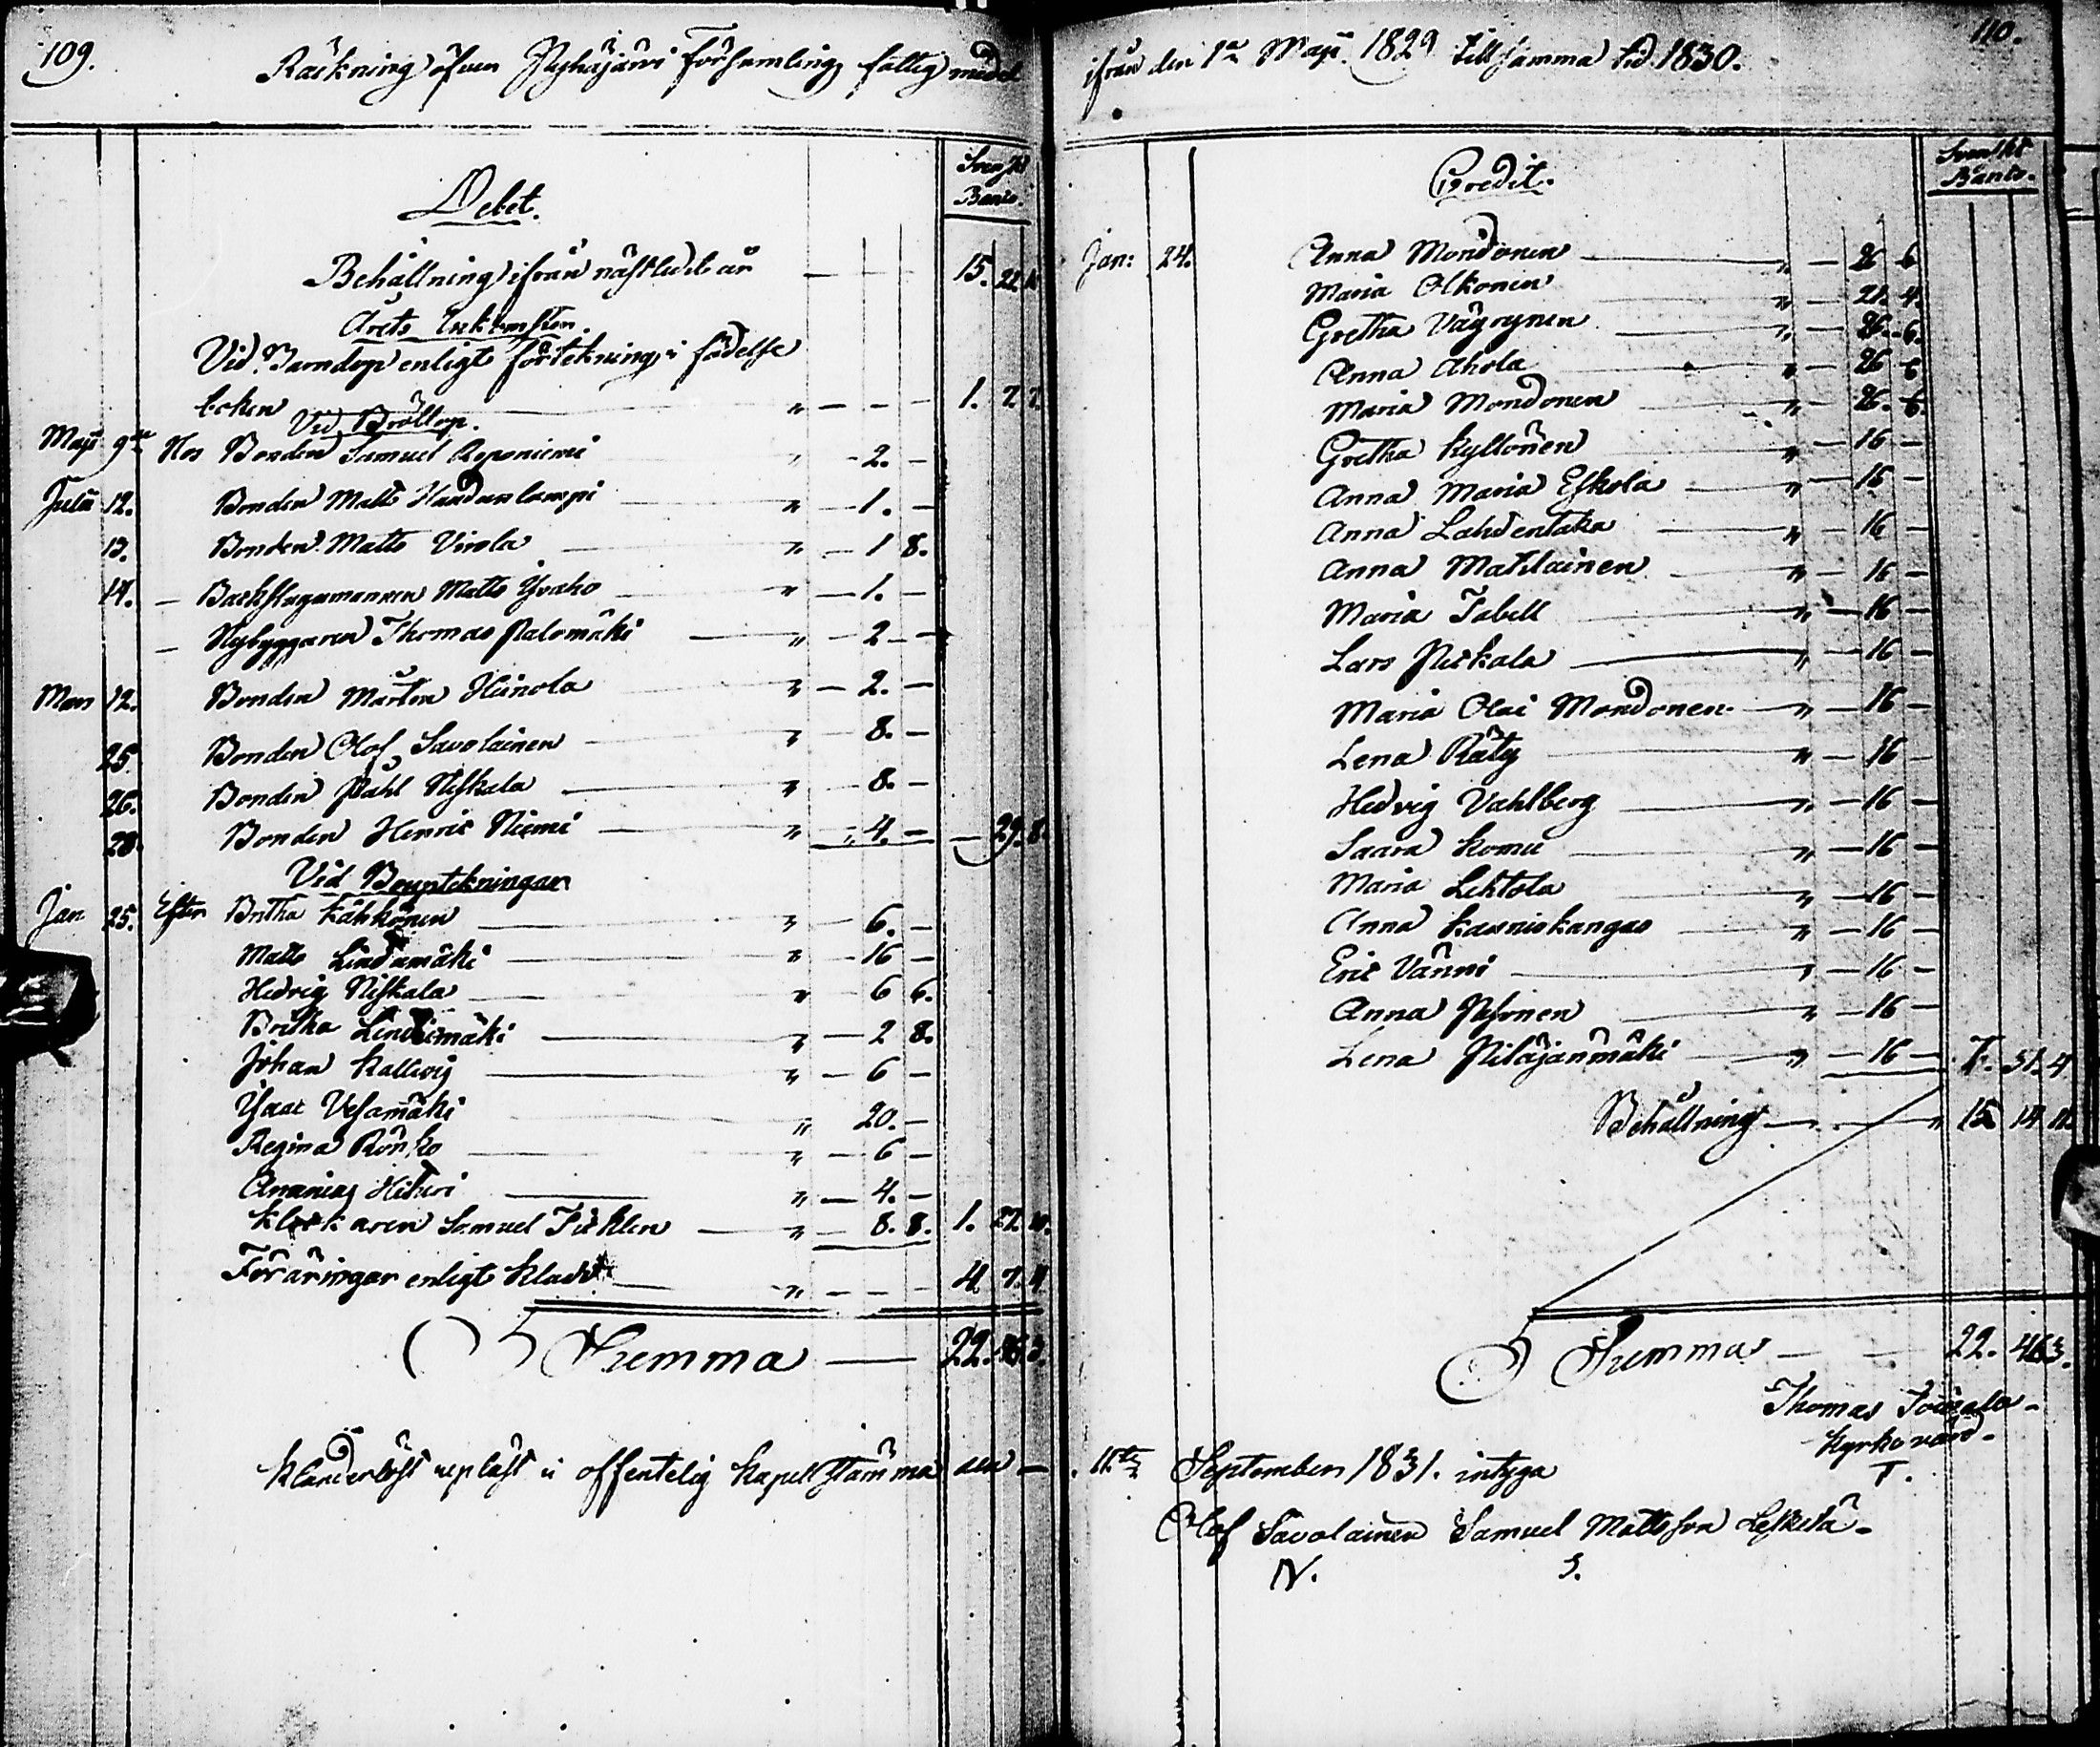 109.
Räkning öfver Pyhäjärvi Församlings fattig medel
Svenskt
Banco.
Debet.
Behållning ifrån nästledit år — 15. 22.
Årets Inkomster.
Vid Barndop enligt förtekning i födelse
boken " — — — 1. 7. 7.
Vid Bröllop.
Maji 9de Hos Bonden Samuel Reponiemi " - 2. -
Julii 12. Bonden Matts Haudanlampi " - 1. -
13. Bonden Matts Virola " - 1 8.
14. — Backstugumannen Matts Yvaho " - 1. -
— Nybyggaren Thomas Palomäki " - 2 -
Mars 12. Bonden Mårten Heinola " - 2. -
25. Bonden Olof Savolainen " - 8. -
26. Bonden Påhl Niskala " - 8. -
28. Bonden Henric Niemi " - 4. - — 29. 8.
Vid Beuptekningar
Jan 25. Efter Britha Kähkönen " - 6. -
Matts Lindamäki " - 16 -
Hedvig Niskala " - 6 6.
Britha Lindamäki " - 2 8.
Johan Kallvig " - 6 -
Ysac Vesamäki " 20. -
Regina Rönkö " - 6 -
Ananias Hikiri " - 4. -
Klockaren Samuel Ticklen " - 8. 8. 1. 27. 10.
Föräringar enligt Kladd " - - - 4. 7. 4.
Summa — 22. 46 3.
Klanderlöst upläst i offentelig Kapell Stämma den —
110.
ifrån den 1a Maji 1829 till samma tid 1830.
Svenskt
Banco.
Credit.
Jan: 24. Anna Mondonen " - 26 6
Maria Olkonen " - 21. 4.
Gretha Väyrynen " - 26. 6.
Anna Ahola " - 26 6
Maria Mondonen " - 26. 6.
Gretha Kyllönen " - 16 -
Anna Maria Eskola " - 16 -
Anna Lahdentaka " - 16 -
Anna Matilainen " - 16 -
Maria Tabell " - 16 -
Lars Piskala " - 16 -
Maria Olai Mondonen " - 16 -
Lena Räty " - 16 -
Hedvig Vahlberg " - 16 -
Saara Komu " - 16 -
Maria Lehtola " - 16 -
Anna Kauniskangas " - 16 -
Eric Vänni " - 16 -
Anna Pesonen " - 16 -
Lena Pilajanmäki " - 16 - 7. 31. 4
Behållning — " 15. 14 11.
Summa — 22. 46 3.
Thomas
Kyrkovärd.
T.
11te September 1831. intyga
Olof Savolainen Samuel Mattsson Leskelä.
N. S.